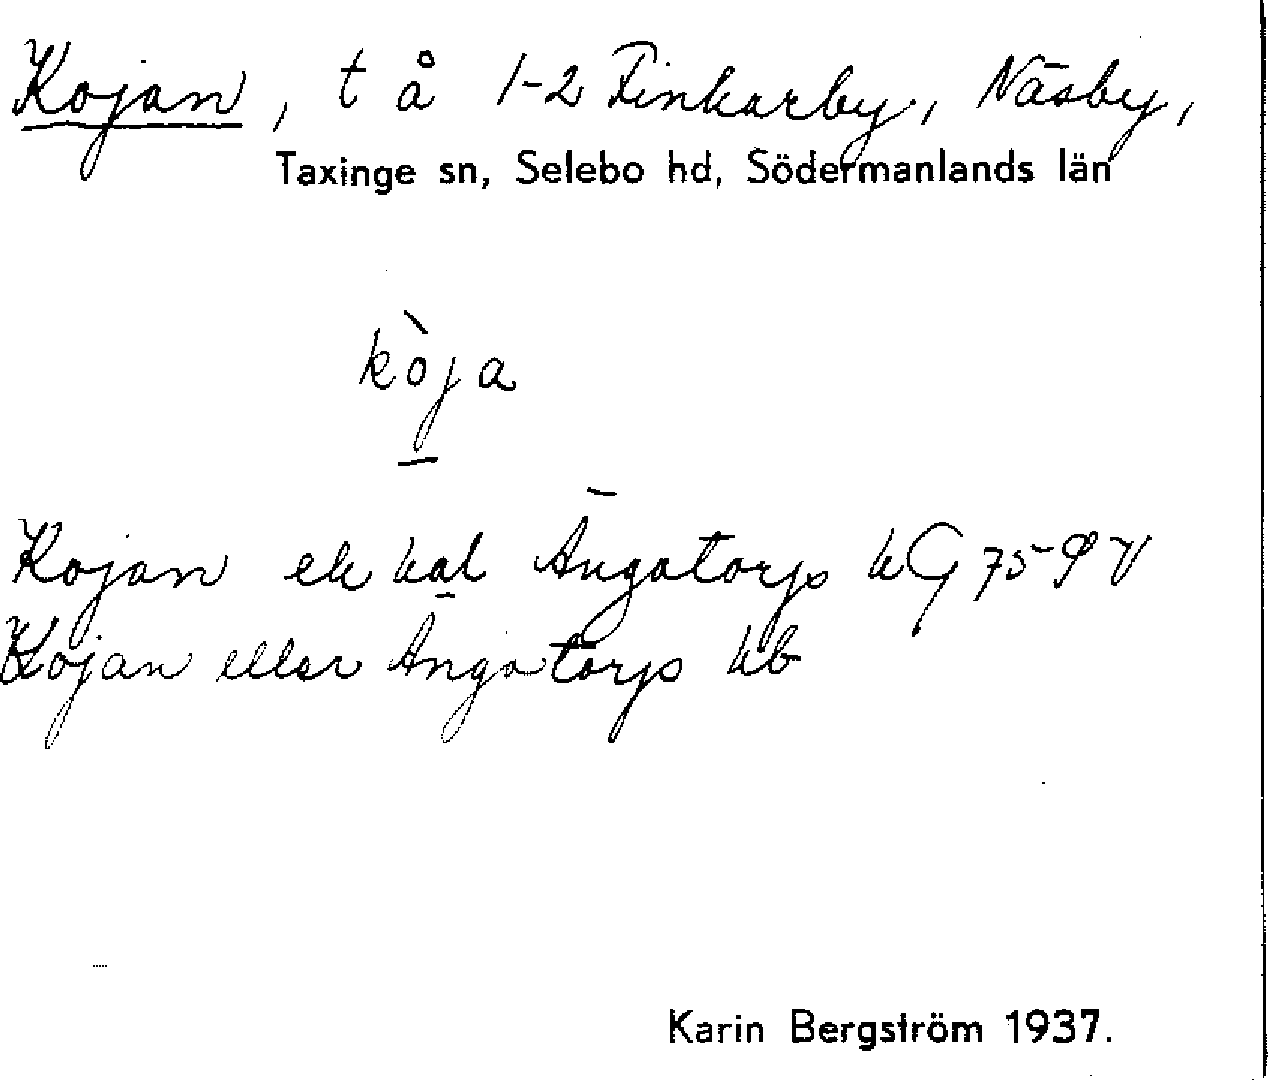 Kojan, t å 1-2 Finkarby, Näsby,
Taxinge sn, Selebo hd, Södermanlands län
kòja
Kojan el kal Ängatorp hG 75
Kojan eller Ängatorp hb
Karin Bergström 1937.